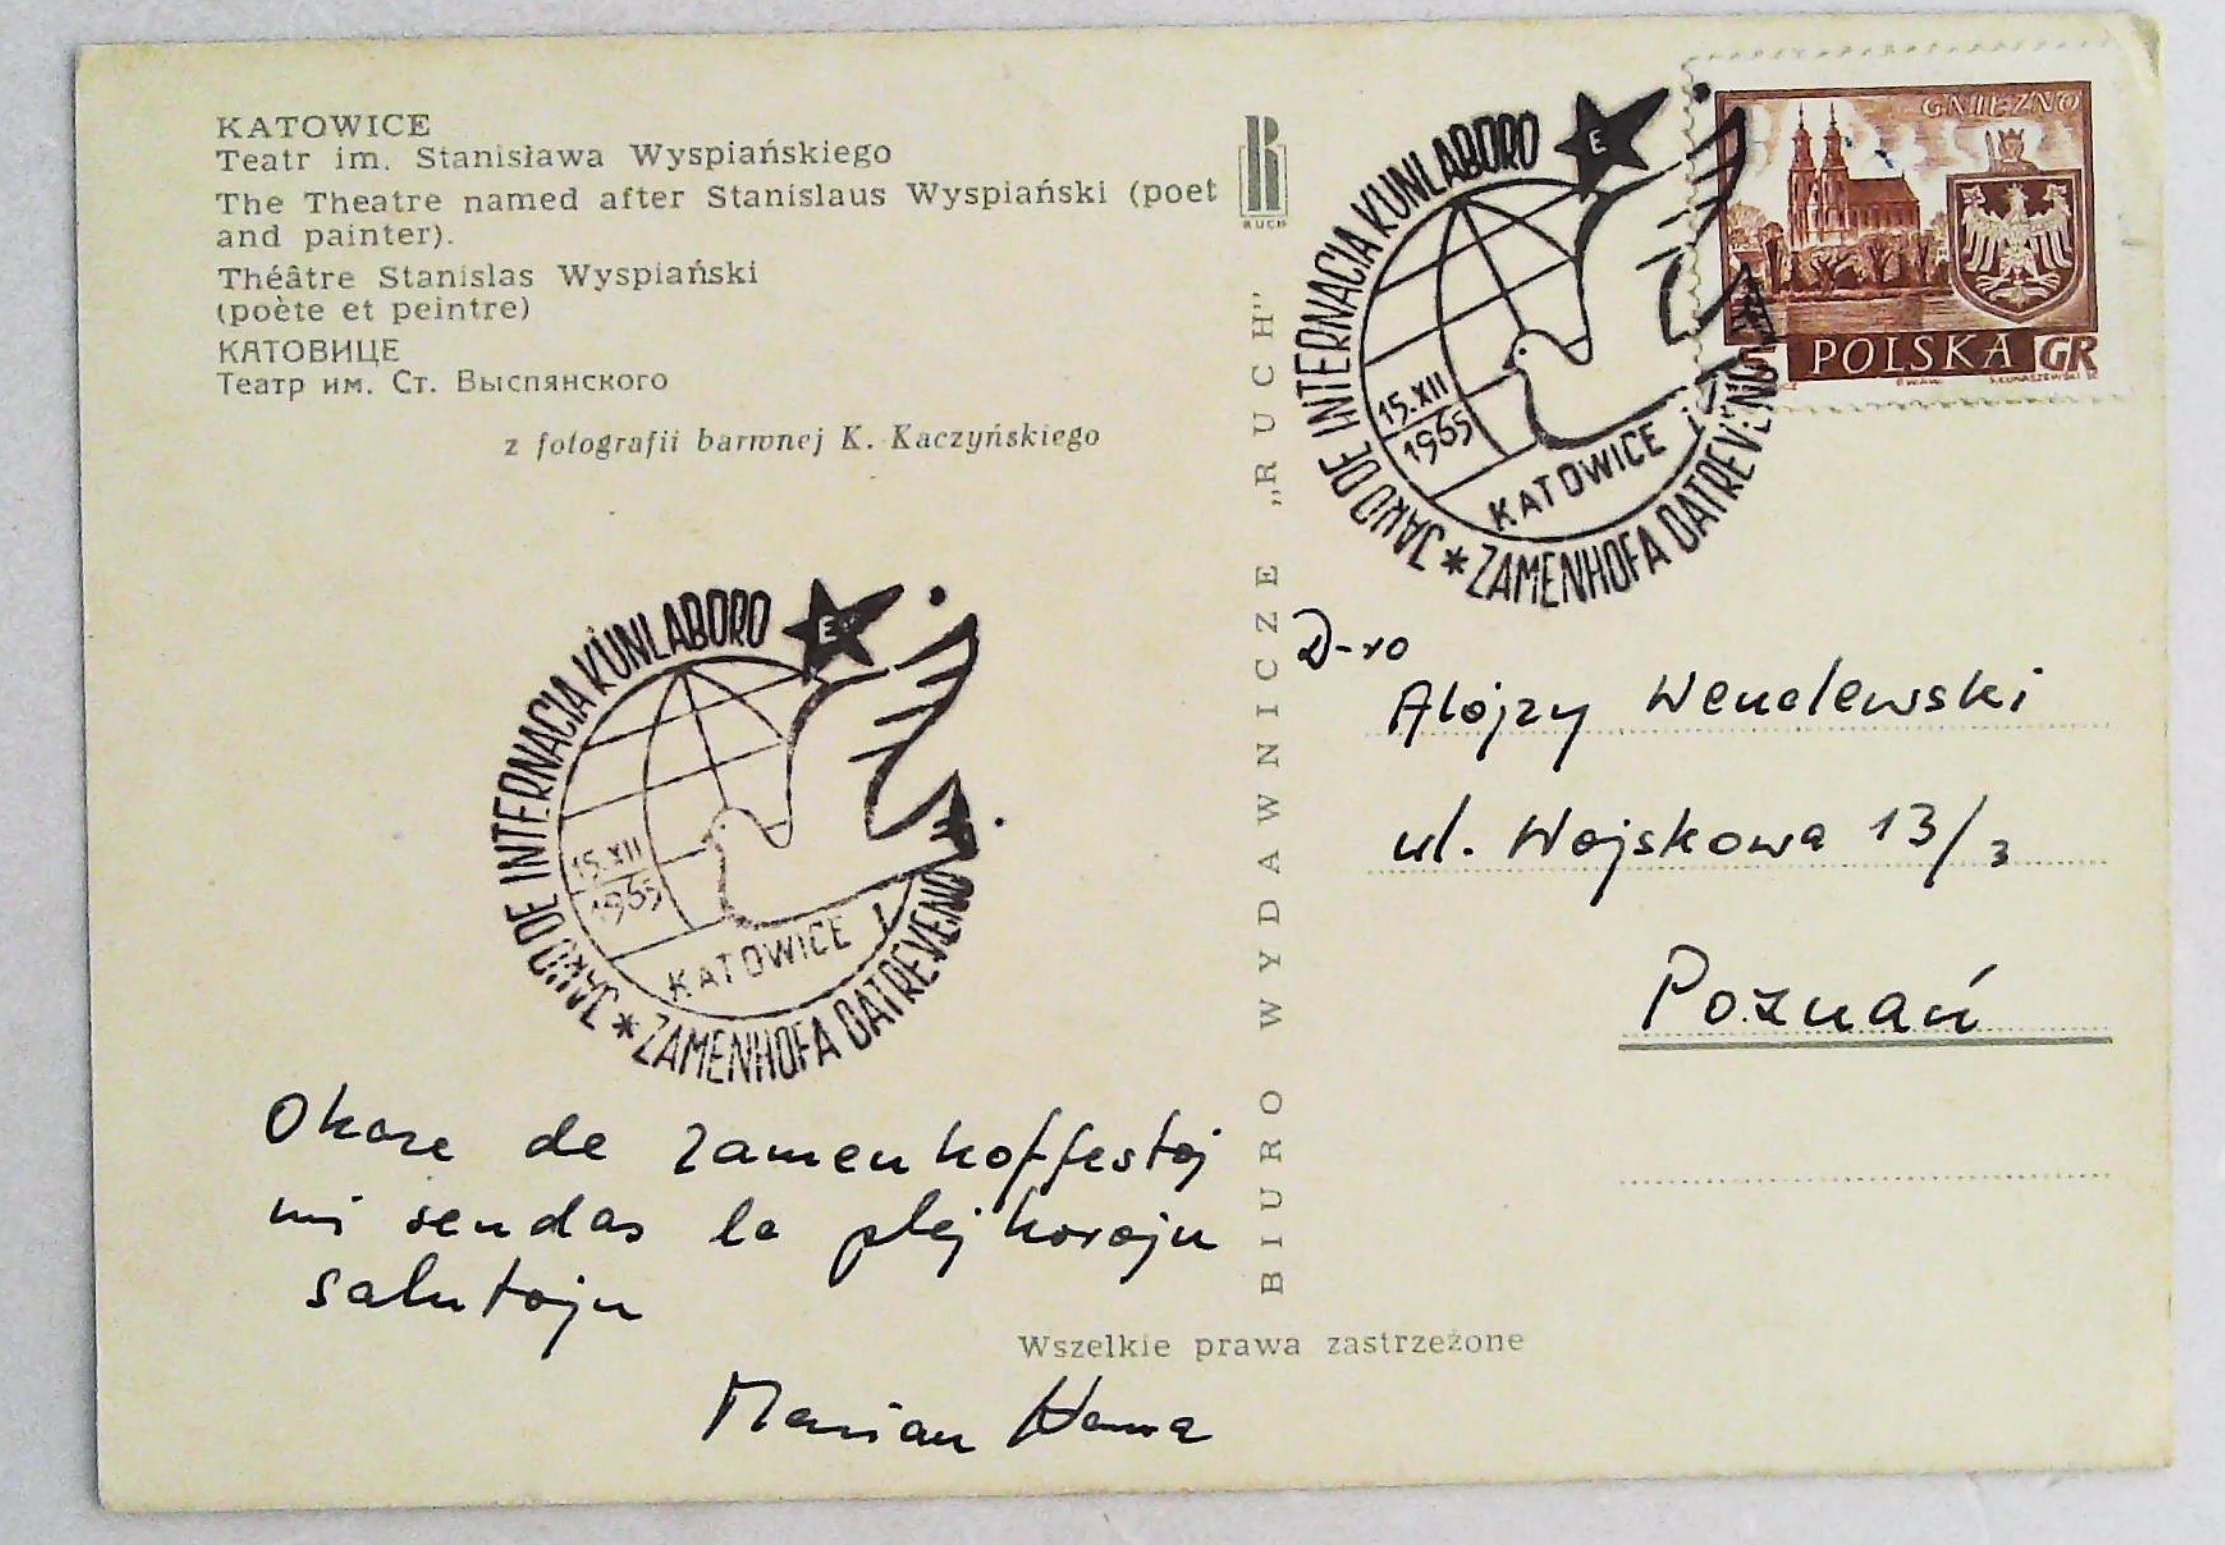 KATOWICE
Teatr im. Stanisława Wyspiańskiego
The Theatre named after Stanislaus Wyspiański (poet
and painter).
Théâtre Stanislas Wyspiański
(poète et peintre)
КАТОВИЦЕ
Театр им. Ст. Выспянского
z fotografii barwnej K. Kaczyńskiego
JARO DE INTERNACIA KUNLABORO
E
15.XII
1965
KATOWICE 1
* ZAMENHOFA DATREVENO
Okaze de Zamenhoffestoj
mi sendas la plej korajn
salutojn
Marian
Wszelkie prawa zastrzeżone
RUCH
BIURO WYDAWNICZE „RUCH"
JARO DE INTERNACIA KUNLABORO
E
15.XII
1965
KATOWICE 1
* ZAMENHOFA DATREVENO
GNIEZNO
POLSKA GR
D-ro
Alojzy Wendlewski
ul. Wojskowa 13/3
Poznań